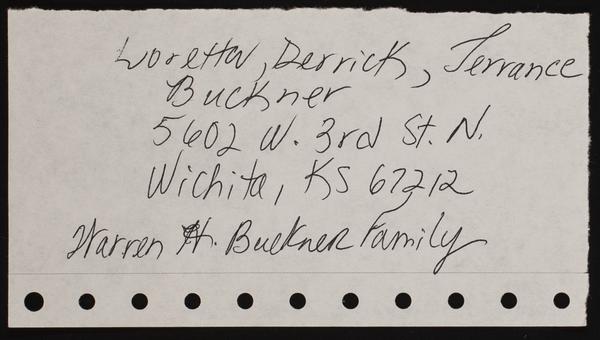 Loretta, Derrick, Terrance
Buckner
5602 W. 3rd St. N.
Wichita, KS 67212
Warren H. Buckner Family